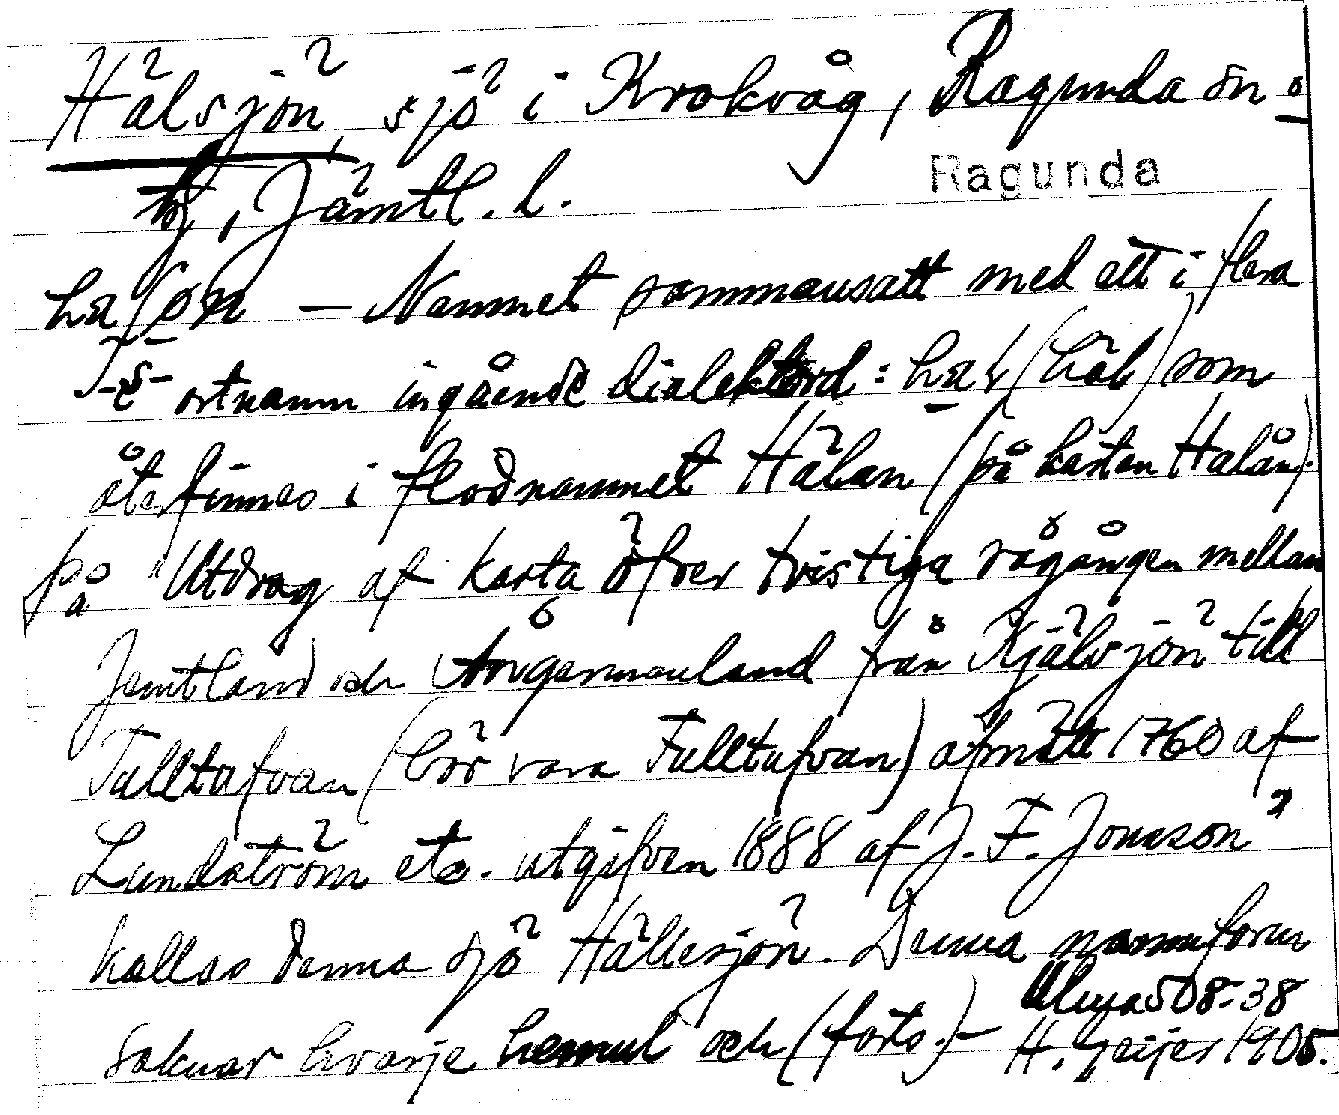 Hälsjön, sjö i Krokvåg, Ragunda sn o
tg, Jämtl. l.
Ragunda
— Namnet sammansatt med ett i flera
ortnamn ingående dialektord: (häl) som
återfinnes i flodnamnet Hälån (på kartan Halån).
på "Utdrag af karta öfver tvistiga rågången mellan
Jemtland och Ångermanland från Kjälsjön till
Tulltafvan (bör vara Fulltafvan) afmätt 1760 af
Lundström etc. utgifven 1888 af J. F. Jonsson"
kallas denna sjö Hällesjön. Denna namnform
saknar hvarje hemul och (forts.) —
Ulma 508:38
H. Geijer 1905.